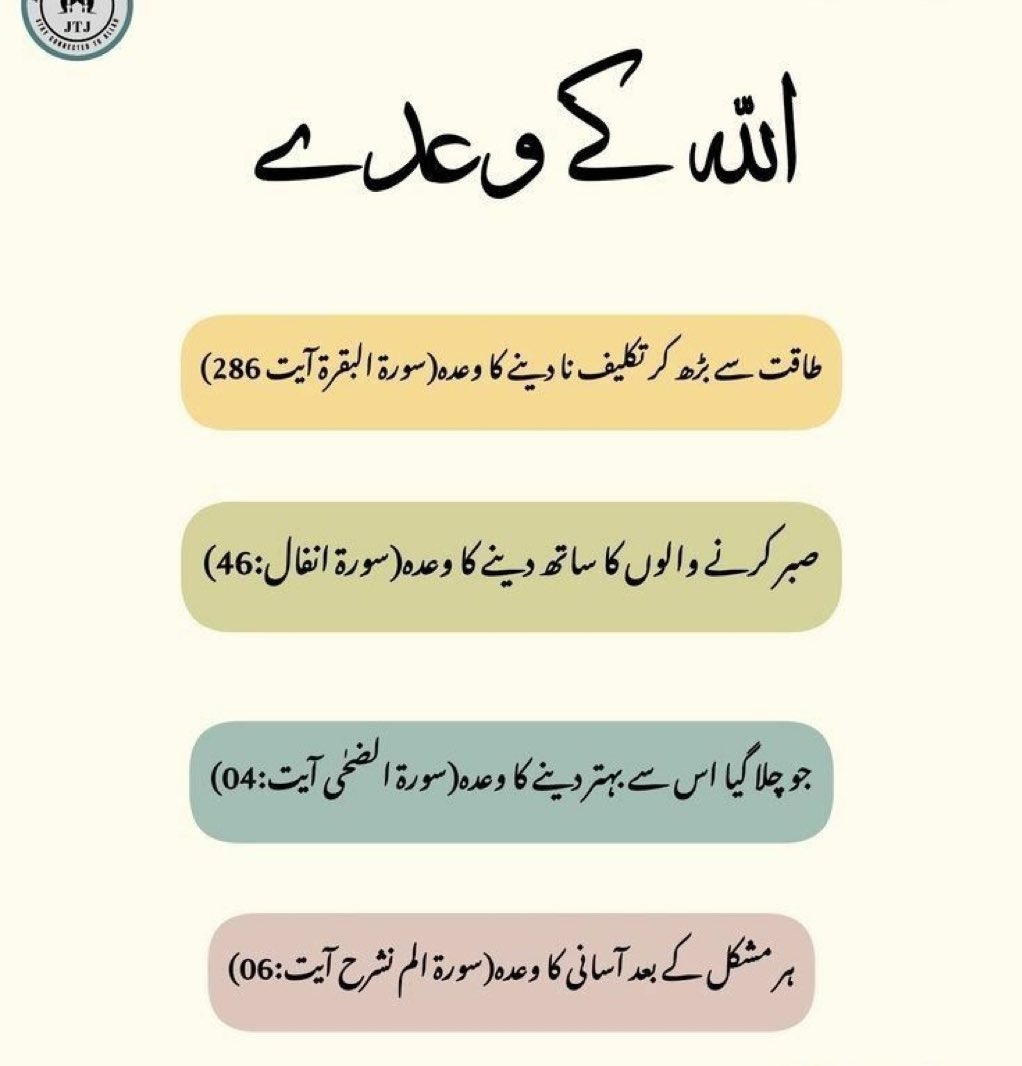 JTJ
STAY CONNECTED TO ALLAH
اللہ کے وعدے
طاقت سے بڑھ کر تکلیف نا دینے کا وعدہ(سورۃ البقرۃ آیت 286)
صبر کرنے والوں کا ساتھ دینے کا وعدہ(سورۃ انفال:46)
جو چلا گیا اس سے بہتر دینے کا وعدہ(سورۃ الضحٰی آیت:04)
ہر مشکل کے بعد آسانی کا وعدہ(سورۃ الم نشرح آیت:06)